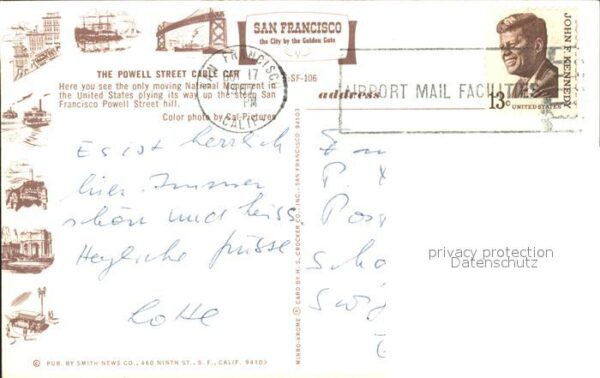 SAN FRANCISCO
the City by the Golden Gate
THE POWELL STREET CABLE CAR
SF-106
Here you see the only moving National Monument in
the United States plying its way up the steep San
Francisco Powell Street hill.
Color photo by Cal-Pictures
address
SAN FRANCISCO
17
PM
CALIF
AIRPORT MAIL FACILITIES
JOHN F. KENNEDY
13c
UNITED STATES
Es ist herrlich
hier. Immer
schön und heiss.
Herzliche Grüsse
Lotte
MIRRO-KROME ® CARD BY H. S. CROCKER CO., INC., SAN FRANCISCO, CALIF. 94101
P.
privacy protection
Datenschutz
© PUB. BY SMITH NEWS CO., 460 NINTH ST., S. F., CALIF. 94103